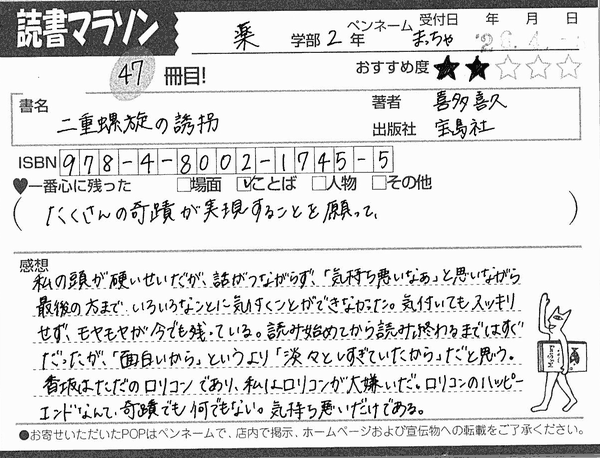 読書マラソン
薬 学部 2 年 ペンネーム まっちゃ 受付日 年 月 日
'26.4.
47 冊目! おすすめ度 ★★☆☆☆
書名 二重螺旋の誘拐
著者 喜多喜久
出版社 宝島社
ISBN 978-4-8002-1745-5
♥一番心に残った □場面 ☑ことば □人物 □その他
( たくさんの奇蹟が実現することを願って、 )
感想
私の頭が硬いせいだが、話がつながらず、「気持ち悪いなぁ」と思いながら
最後の方まで、いろいろなことに気付くことができなかった。気付いてもスッキリ
せず、モヤモヤが今でも残っている。読み始めてから読み終わるまではすぐ
だったが、「面白いから」というより「淡々としすぎていたから」だと思う。
香坂はただのロリコンであり、私はロリコンが大嫌いだ。ロリコンのハッピー
エンドなんて、奇蹟でも何でもない。気持ち悪いだけである。
●お寄せいただいたPOPはペンネームで、店内で掲示、ホームページおよび宣伝物への転載をご了承ください。